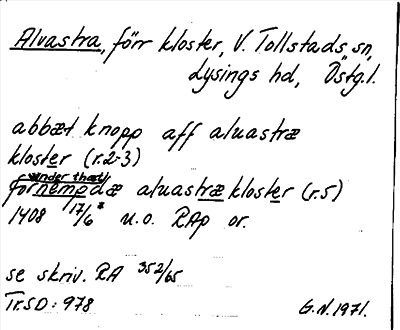 Alvastra, förr kloster, V. Tollstads sn,
Lysings hd, Östg.l.
abbæt knopp aff aluastræ
kloster (r.2-3)
under thæt
fornempdæ aluastræ kloster (r.5)
1408 17/6 * u.o. RAp or.
se skriv. RA 352/65
Tr.SD: 978
G.N. 1971.